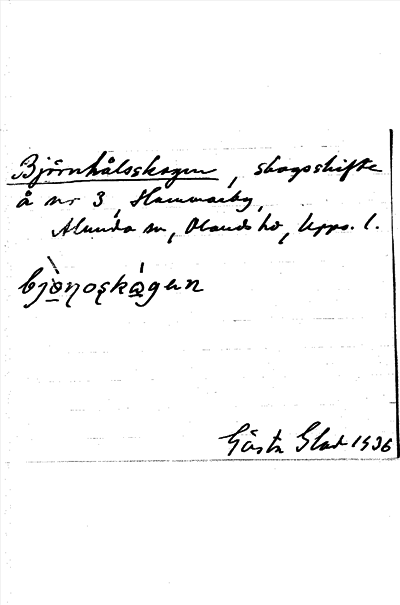 Björnhålsskogen, skogsskifte
å nr 3, Hammarby,
Alunda sn, Olands hd, Upps. l.
bjò̱ŋoʂká̱gən
Gösta Glad 1936